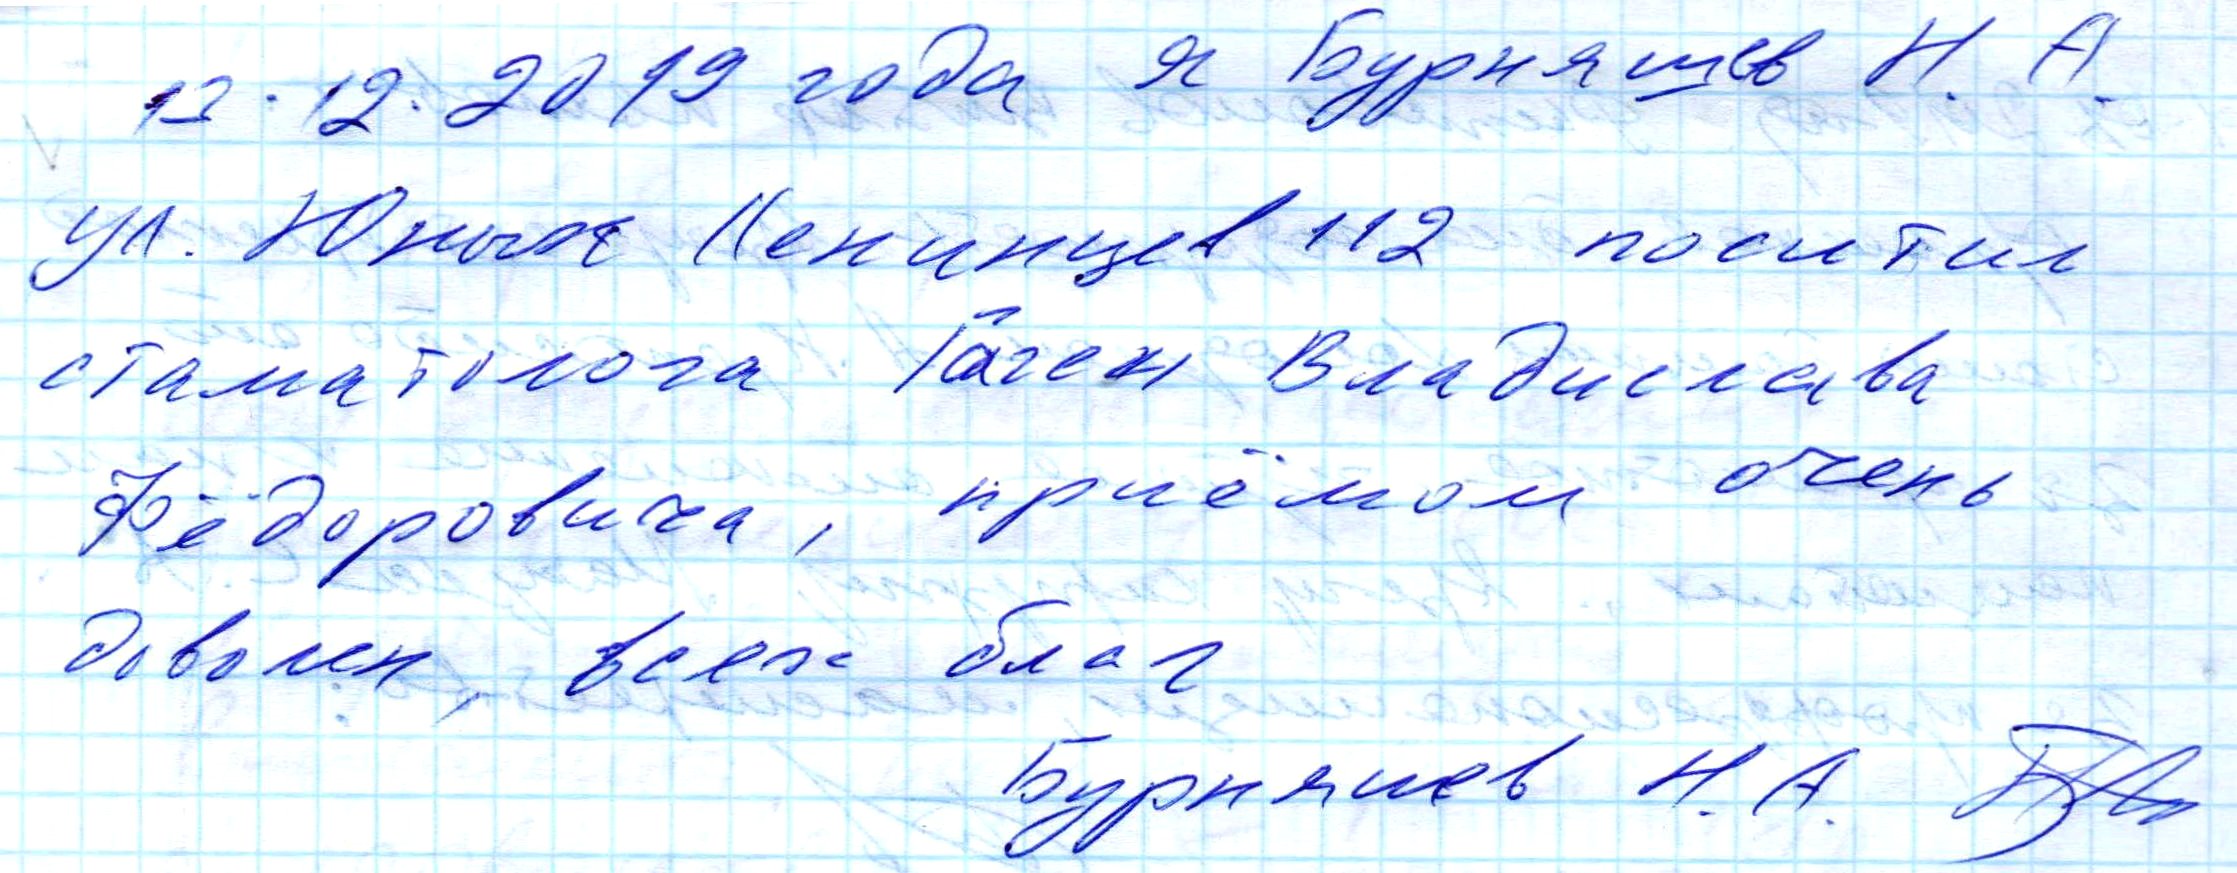 12.12.2019 года я Бурняшев Н. А.
ул. Юных Ленинцев 112 поситил
стаматолога Гаген Владислава
Фёдоровича, приёмом очень
доволен, всех благ
Бурняшев Н. А.